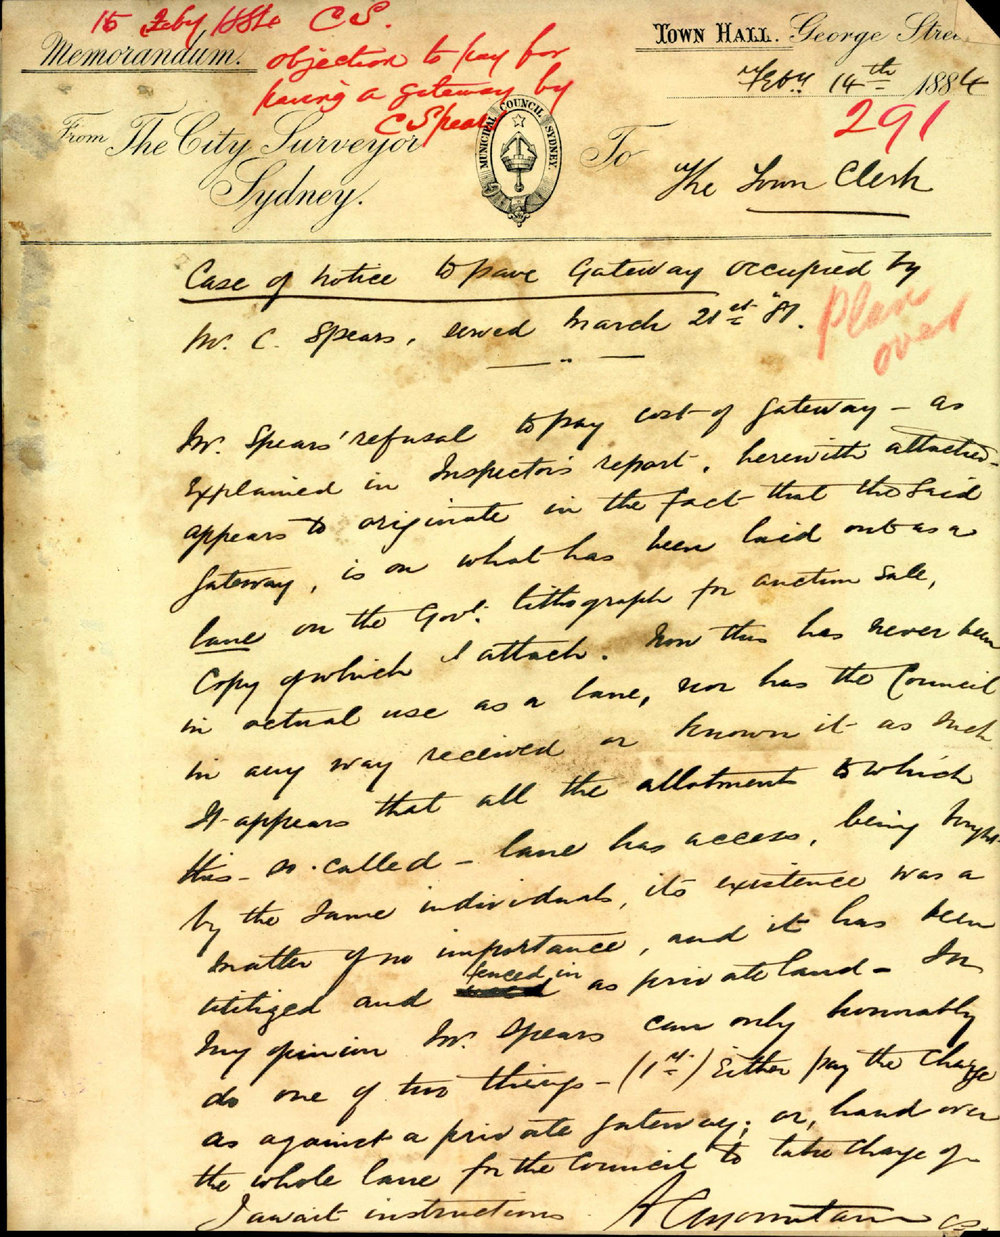 15 Feby 1884 C S.
objection to pay for
paving a gateway by
C Spears
Memorandum.
Town Hall. George Stree
Feby. 14th 1884
291
From The City Surveyor
Sydney.
MUNICIPAL COUNCIL SYDNEY.
To
The Town Clerk
Case of notice to pave Gateway occupied by
Mr. C. Spears, served March 21st
Plan
over
Mr. Spears' refusal to pay cost of gateway - as
explained in Inspector's report, herewith attached -
appears to originate in the fact that the said
gateway, is on what has been laid out as a
lane on the Govt. lithograph for auction sale,
copy of which I attach. Now this has never been
in actual use as a lane, nor has the Council
in any way received or known it as such
It appears that all the allotments to which
this - so-called - lane has access, being bought
by the same individuals, its existence was a
matter of no importance, and it has been
utilized and fenced in as private land - In
my opinion Mr. Spears can only honorably
do one of two things - (1st) Either pay the charge
as against a private gateway; or, hand over
the whole lane for the Council to take charge of
I await instructions